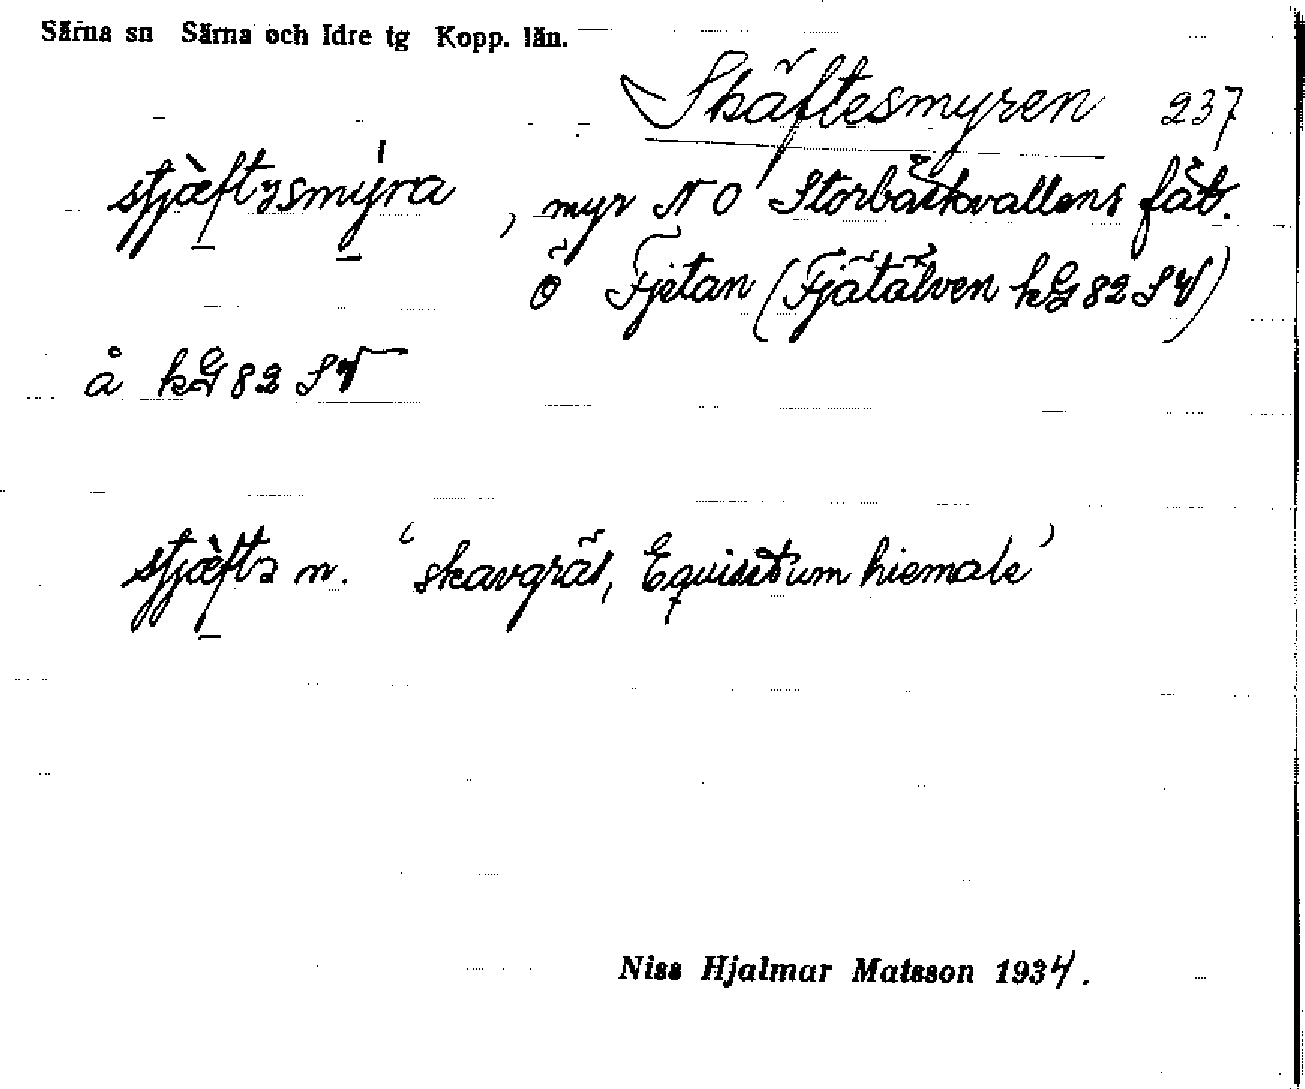 Särna sn Särna och Idre tg Kopp. län.
Skäftesmyren 237
stjæftəsmyra, myr NO Storbäckvallens fäb.
Ö Fjetan (Fjätälven kG 82 SV)
å kG 82 SV
stjæftə n. 'skavgräs, Equisetum hiemale'
Niss Hjalmar Matsson 1934.